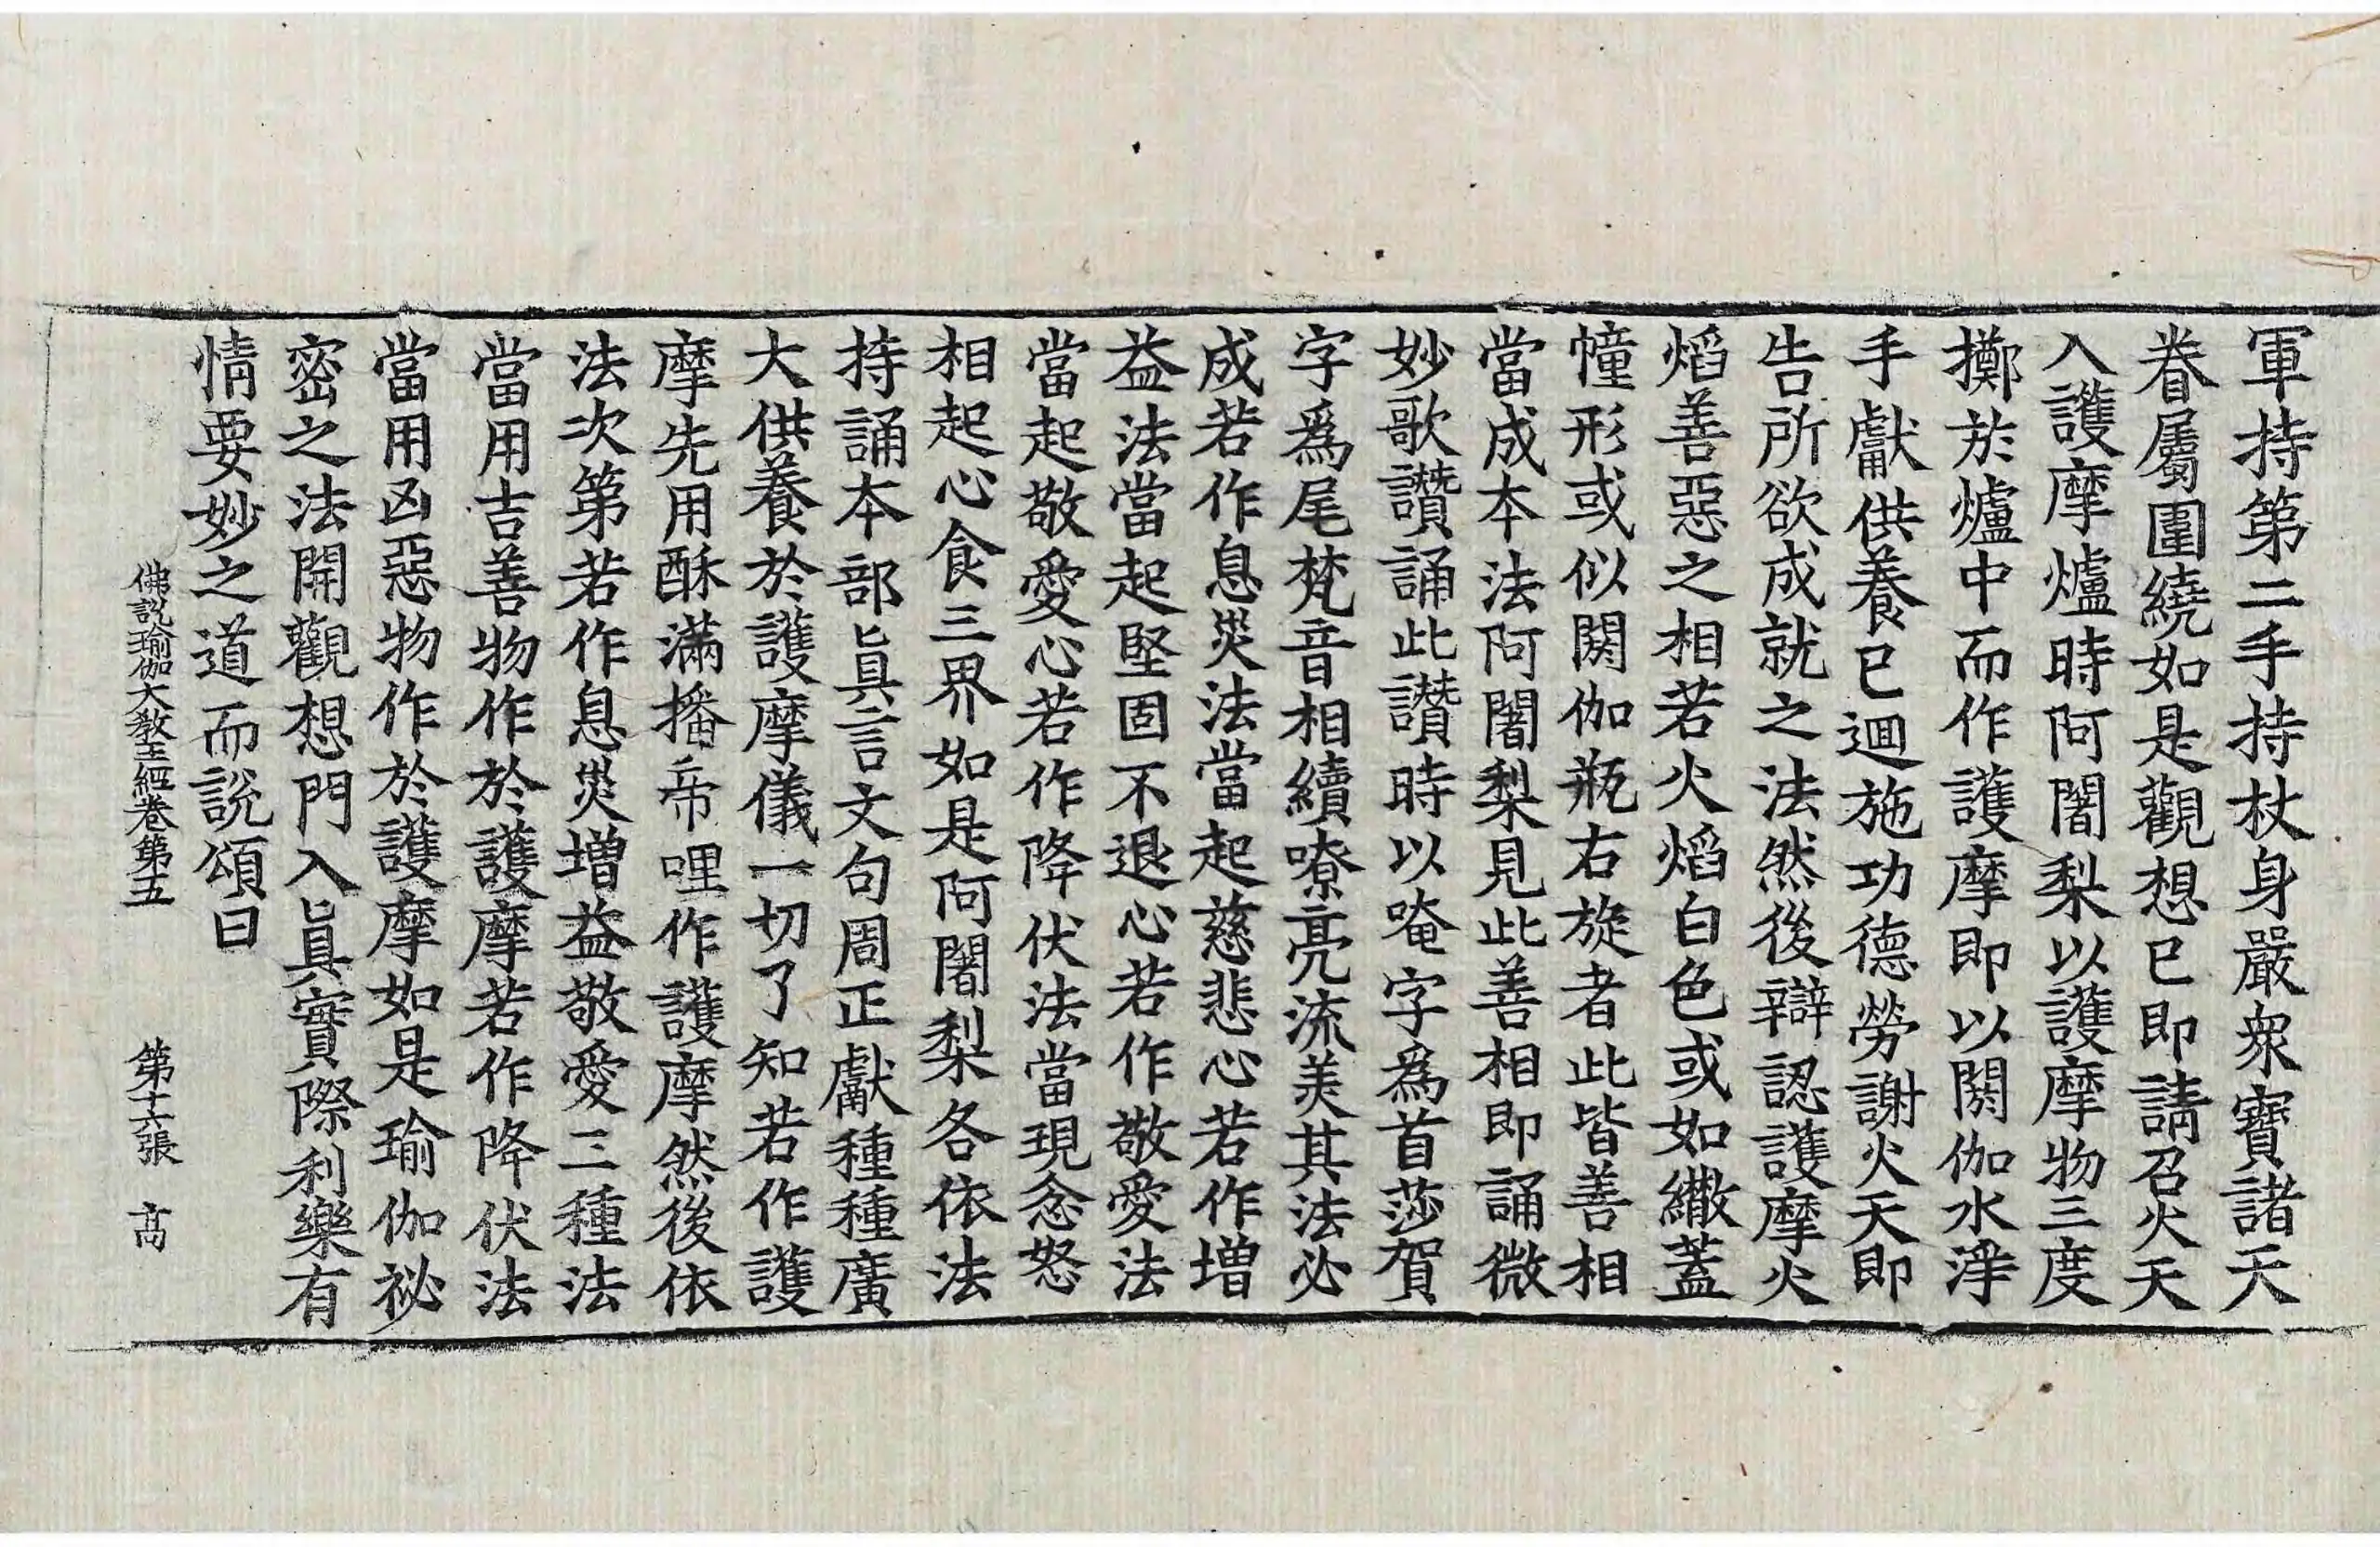 軍持第二手持杖身嚴衆寶諸天
眷屬圍繞如是觀想已即請召火天
入護摩爐時阿闍梨以護摩物三度
擲於爐中而作護摩即以閼伽水淨
手獻供養已迴施功德勞謝火天即
告所欲成就之法然後辯認護摩火
焰善惡之相若火焰白色或如繖蓋
幢形或似閼伽瓶右旋者此皆善相
當成本法阿闍梨見此善相即誦微
妙歌讚誦此讚時以唵字爲首莎賀
字爲尾梵音相續嘹亮流美其法必
成若作息災法當起慈悲心若作增
益法當起堅固不退心若作敬愛法
當起敬愛心若作降伏法當現忿怒
相起心食三界如是阿闍梨各依法
持誦本部眞言文句周正獻種種廣
大供養於護摩儀一切了知若作護
摩先用酥滿播帝哩作護摩然後依
法次第若作息災增益敬愛三種法
當用吉善物作於護摩若作降伏法
當用凶惡物作於護摩如是瑜伽祕
密之法開觀想門入眞實際利樂有
情要妙之道而說頌曰
佛說瑜伽大教王經卷第五 第十六張 高